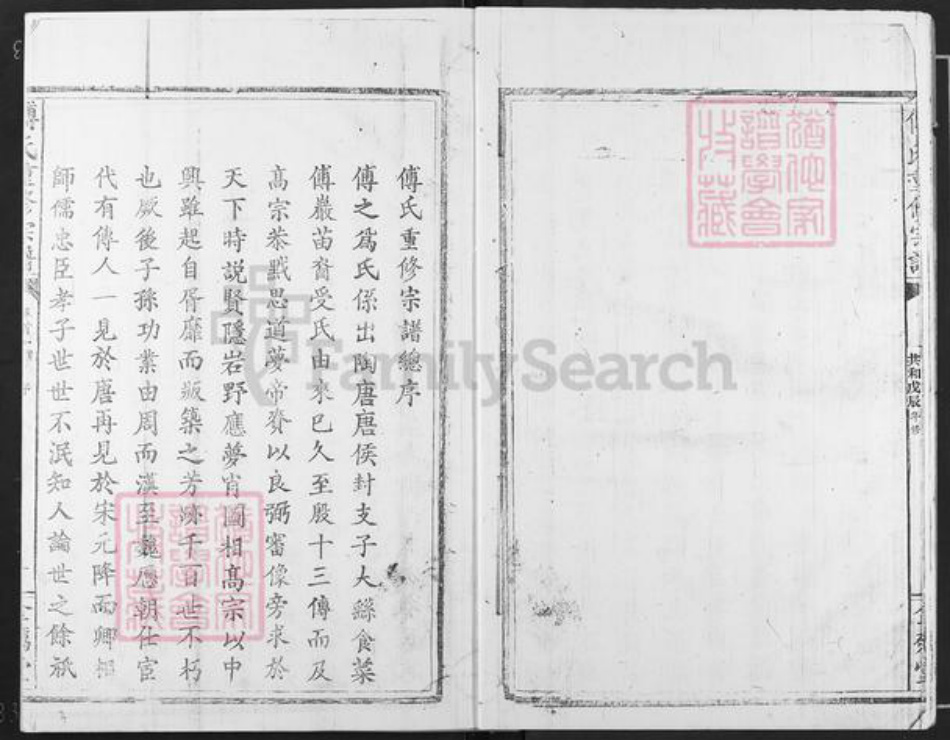 共和戊辰年修
傅氏重修宗譜總序
傅之爲氏係出陶唐唐侯封支子大繇食菜
傅巖苗裔受氏由來已久至殷十三傳而及
高宗恭默思道夢帝賚以良弼審像旁求於
天下時説賢隱岩野應夢肖圖相高宗以中
興雖起自胥靡而版築之芳跡千百世不朽
也厥後子孫功業由周而漢至魏歷朝仕宦
代有傳人一見於唐再見於宋元降而卿相
師儒忠臣孝子世世不泯知人論世之餘祇
傅氏重修宗譜
FamilySearch